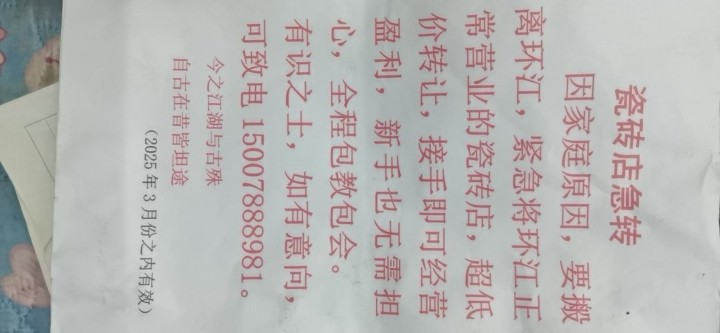 瓷砖店急转
因家庭原因，要搬
离环江，紧急将环江正
常营业的瓷砖店，超低
价转让，接手即可经营
盈利，新手也无需担
心，全程包教包会。
有识之士，如有意向，
可致电 15007888981。
今之江湖与古殊
自古在昔皆坦途
（2025 年 3 月份之内有效）